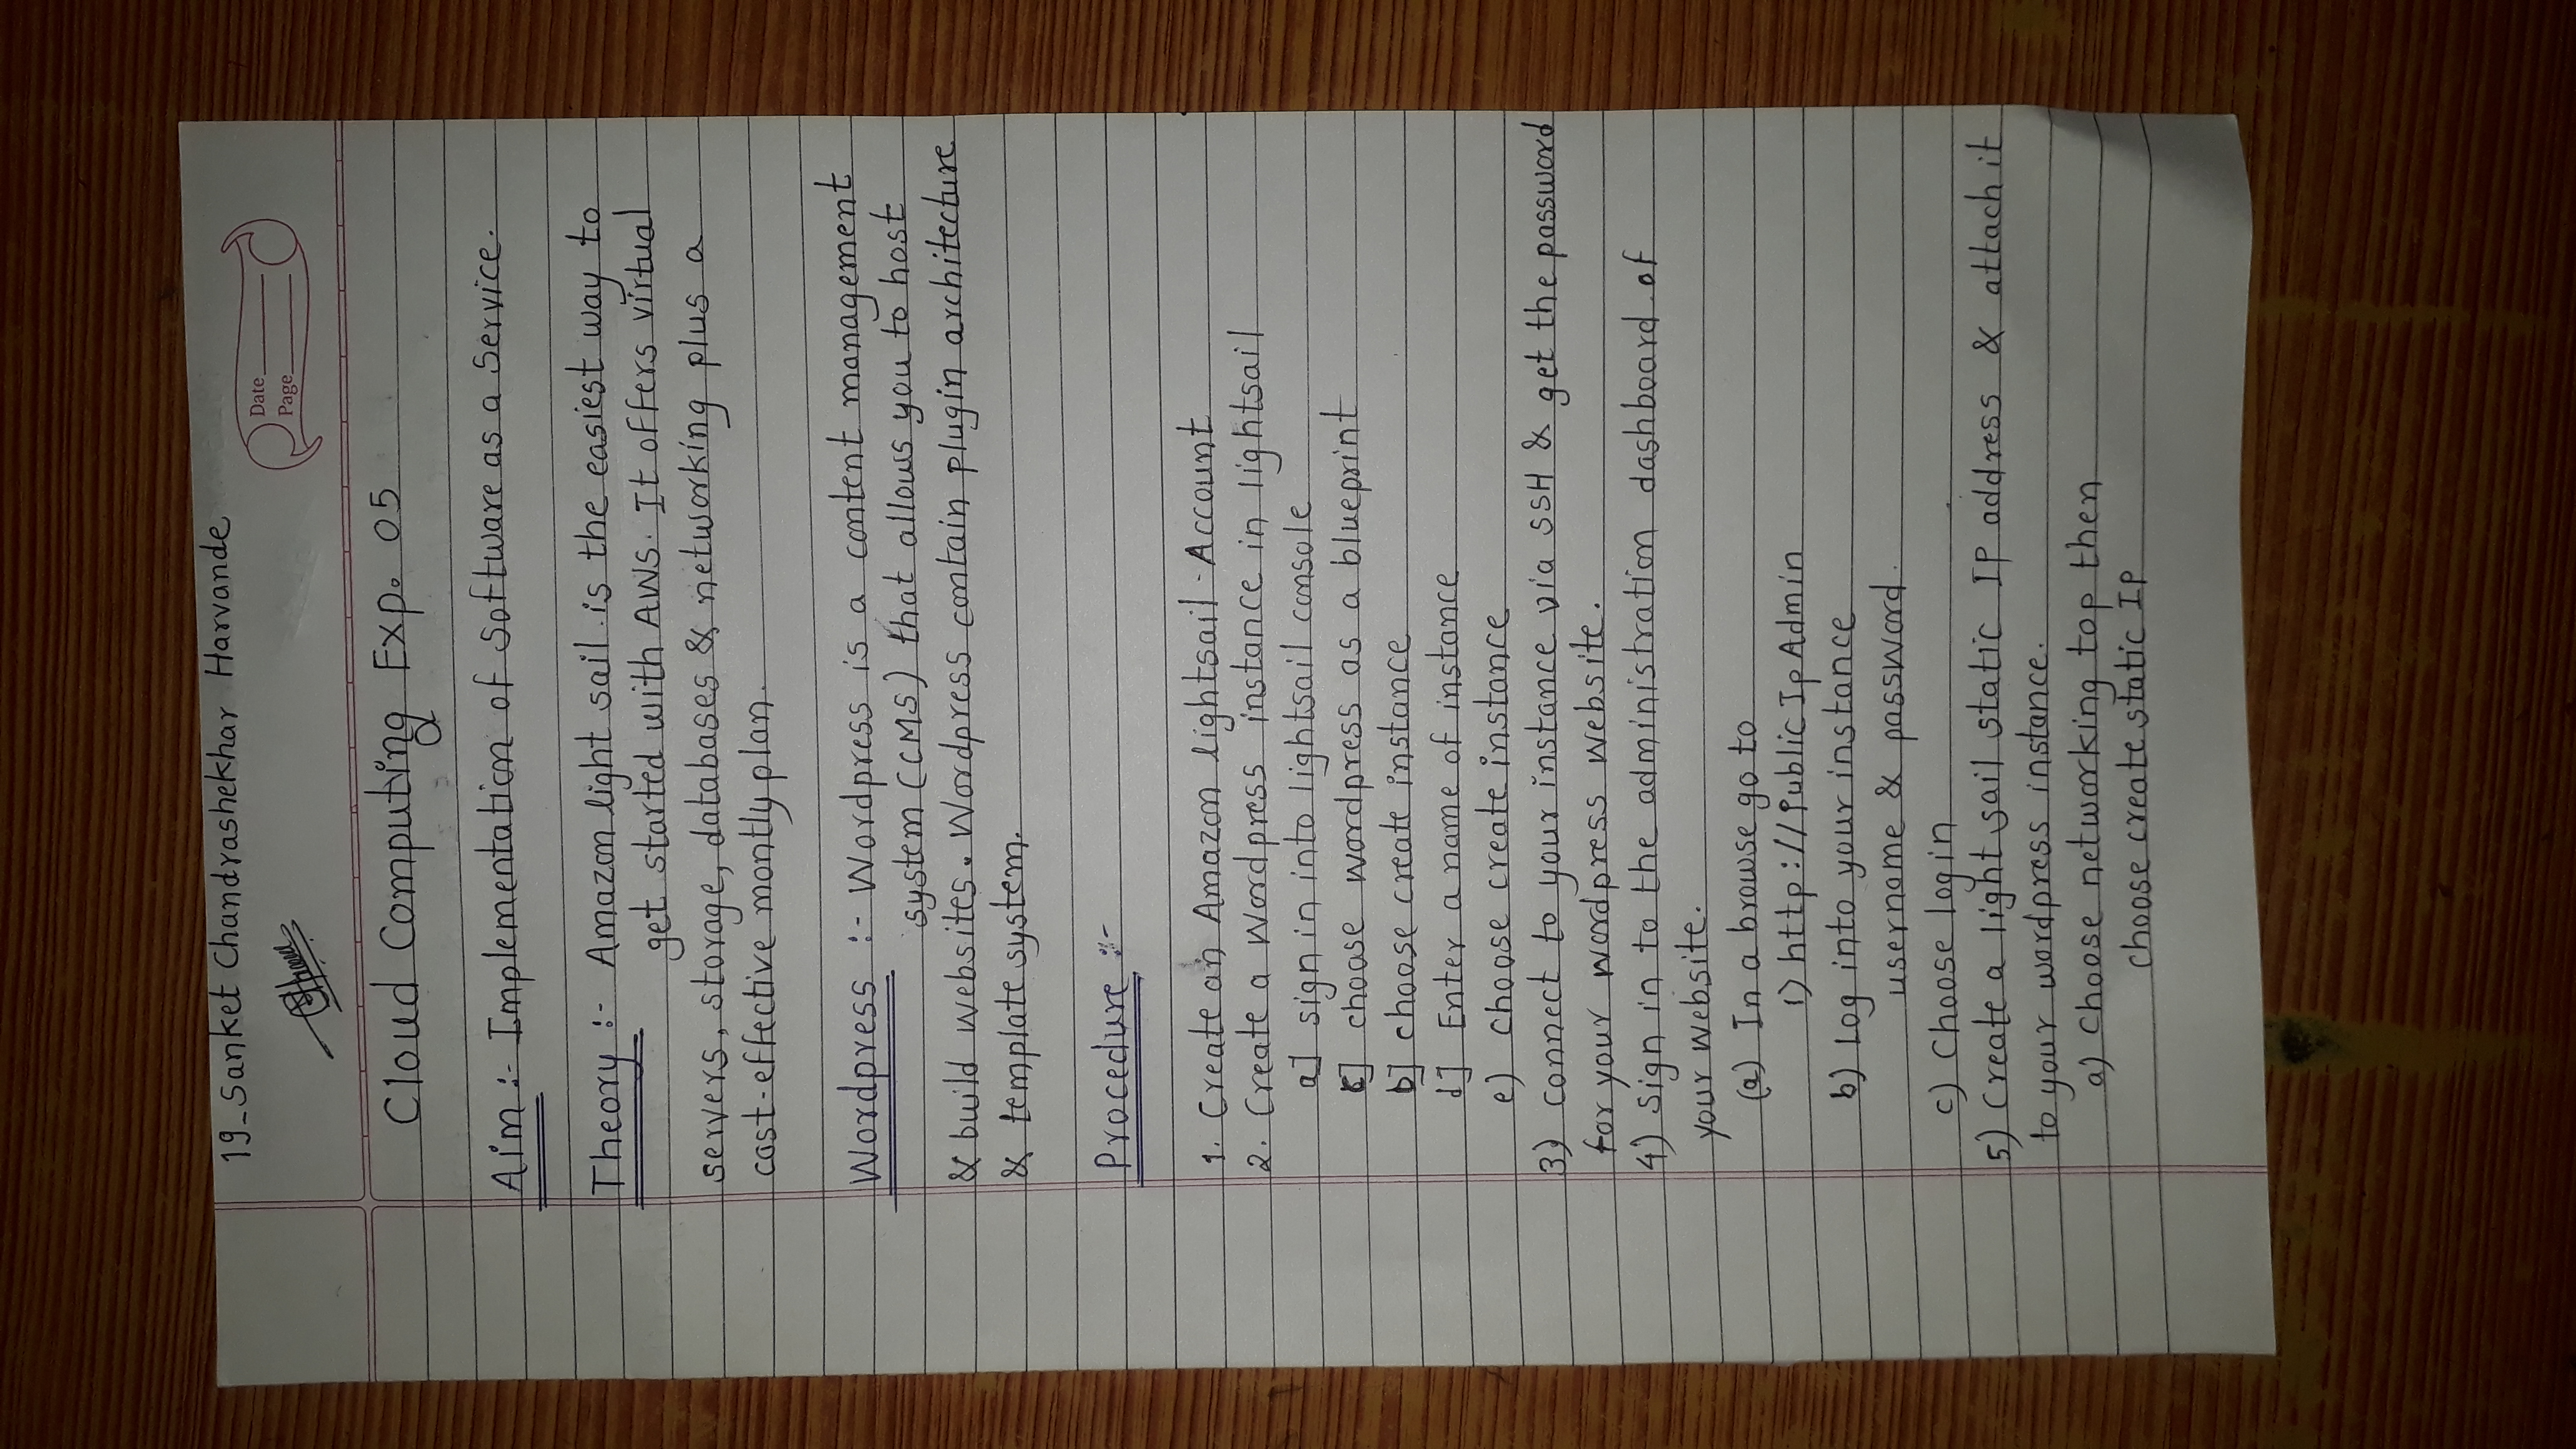 19_Sanket Chandrashekhar Harvande
Date
Page
Cloud Computing Exp. 05
Aim :- Implementation of Software as a Service.
Theory :- Amazon light sail is the easiest way to
get started with AWS. It offers virtual
servers, storage, databases & networking plus a
cost-effective montly plan.
Wordpress :- Wordpress is a content management
system (CMS) that allows you to host
& build websites. Wordpress contain plugin architecture
& template system.
Procedure :-
1. Create an Amazon lightsail Account
2. Create a Wordpress instance in lightsail
a] sign in into lightsail console
c] choose wordpress as a blueprint
b] choose create instance
d] Enter a name of instance
e) choose create instance
3) connect to your instance via SSH & get the password
for your wordpress website.
4) sign in to the administration dashboard of
your website.
(a) In a browse go to
i) http://PublicIpAdmin
b) Log into your instance
username & password.
c) choose login
5) Create a light sail static IP address & attach it
to your wordpress instance.
a) choose networking top then
choose create static Ip